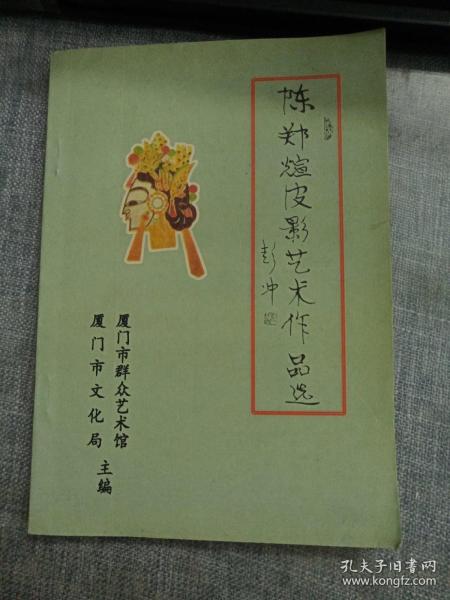 陈郑煊皮影艺术作品选
彭冲
厦门市群众艺术馆
厦门市文化局
主编
孔夫子旧书网
www.kongfz.com